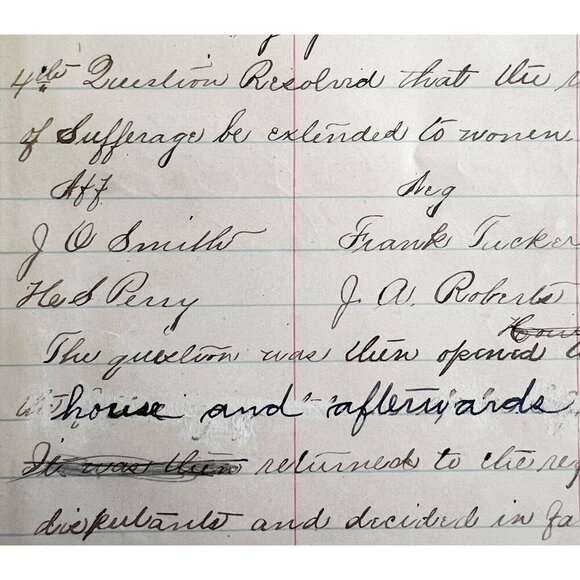 4th Question Resolved that the
of Sufferage be extended to women
Aff Neg
J O Smith Frank Tucker
H S Perry J. A. Roberts
The question was then opened
house and afterwards
It was then returned to the reg
disputants and decided in fa